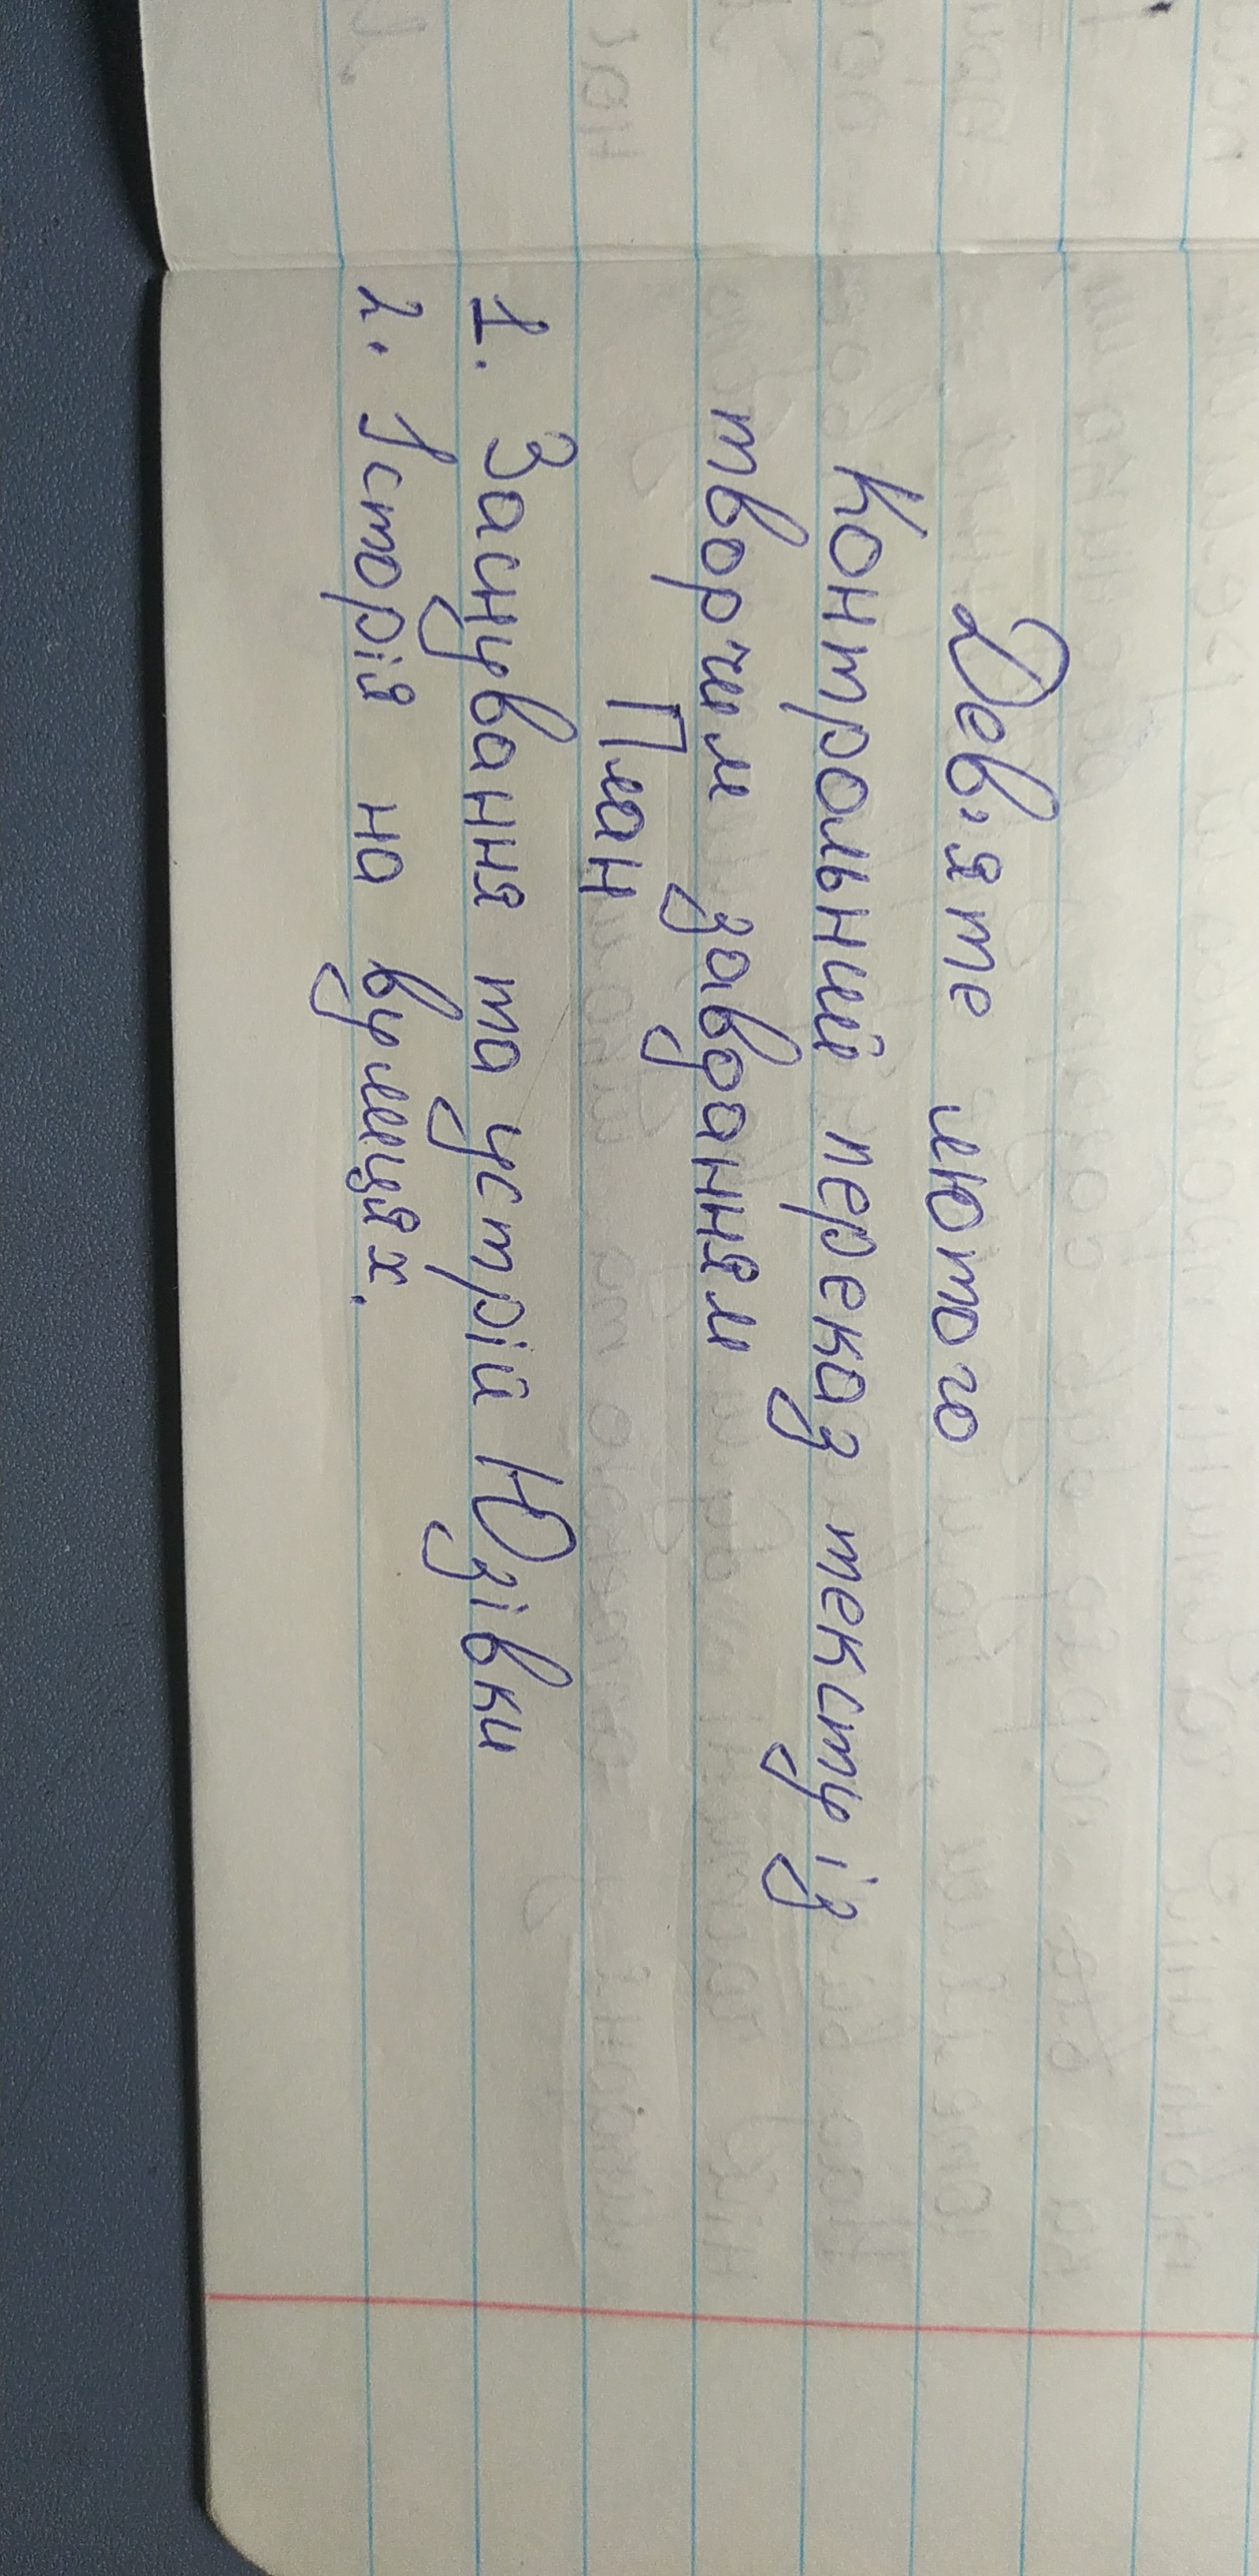 Дев'яте лютого
Контрольний переказ тексту із
творчим завданням
План
1. Заснування та устрій Юзівки
2. Історія на вулицях.